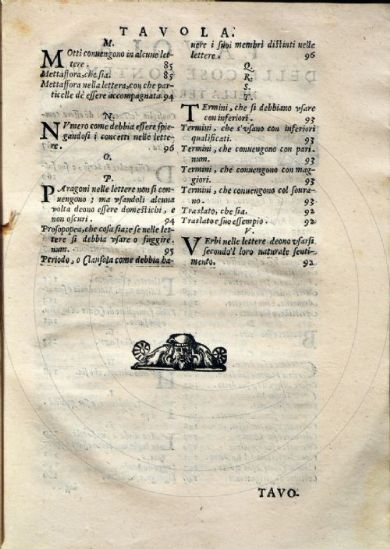 TAVOLA.
M.
MOtti conuengono in alcune lettere. 85
Mettaffora, che sia. 85
Mettaffora nella lettera, con che particelle dè essere accompagnata. 94
N.
NVmero come debbia essere spiegandosi i concetti nelle lettere. 96
O.
P.
PAragoni nelle lettere non si conuengono; ma vsandoli alcuna
volta deono essere domestichi, e
non oscuri. 94
Prosopopea, che cosa sia: e se nelle lettere
si debbia vsare o fuggire.
num. 95
Periodo, o Clausola come debbia hauere
i suoi membri distinti nelle
lettere. 96
Q.
R.
S.
T.
TErmini, che si debbiano vsare
con inferiori. 93
Termini, che s'vsano con inferiori
qualificati. 93
Termini, che conuengono con pari.
num. 93
Termini, che conuengono con maggiori. 93
Termini, che conuengono col sourano. 93
Traslato, che sia. 92
Traslato e suo essempio. 92
V.
VErbi nelle lettere deono vsarsi
secondo'l loro naturale sentimento. 92
TAVO-